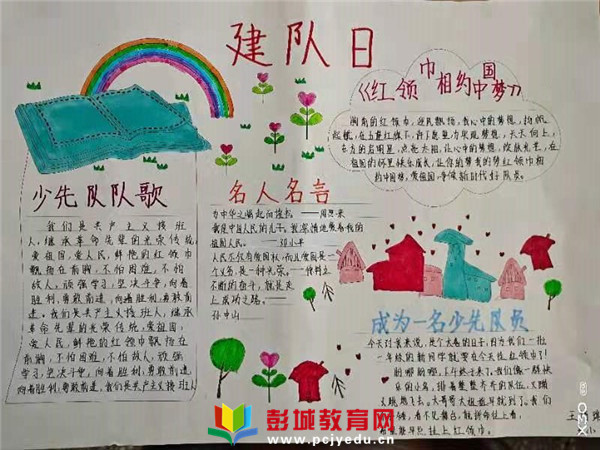 建队日
《红领巾相约中国梦》
胸前的红领巾，迎风飘扬，我心中的梦想，扬帆
起航，在五星红旗下，
天天向上，
让心中的梦想，绽放光芒，在
祖国的怀里快乐成长，让你的梦我的梦红领巾相
约中国梦，爱祖国，争做新时代好队员。
少先队队歌
我们是共产主义接班
人，继承革命先辈的光荣传统，
爱祖国，爱人民，鲜艳的红领巾
飘扬在前胸，不怕困难，不怕
敌人，顽强学习，坚决斗争，向着
胜利，勇敢前进，向着胜利，勇敢前
进。我们是共产主义接班人，继承
革命先辈的光荣传统，爱祖国，
爱人民，鲜艳的红领巾飘扬在
前胸，不怕困难，不怕敌人，顽强
学习，坚决斗争，向着胜利，勇敢前进
向着胜利，勇敢前进，我们是共产主义接班人
名人名言
为中华之崛起而读书——周恩来
我是中国人民的儿子，我深情地爱着我的
祖国人民。——邓小平
人民不仅有爱国权，而且爱国是一
个义务，是一种光荣。——徐特立
不断的奋斗，就是走
上成功之路。——
孙中山
成为一名少先队员
今天对我来说，是个大喜的日子，因为我们一班
一年级的新同学就要在今天挂红领巾了！
我们像一群快
乐的小鸟，排着整整齐齐的队伍，又蹦
又跳
我们
看不见舞台，
挂上红领巾。
王
小
彭城教育网
www.pcjyedu.cn